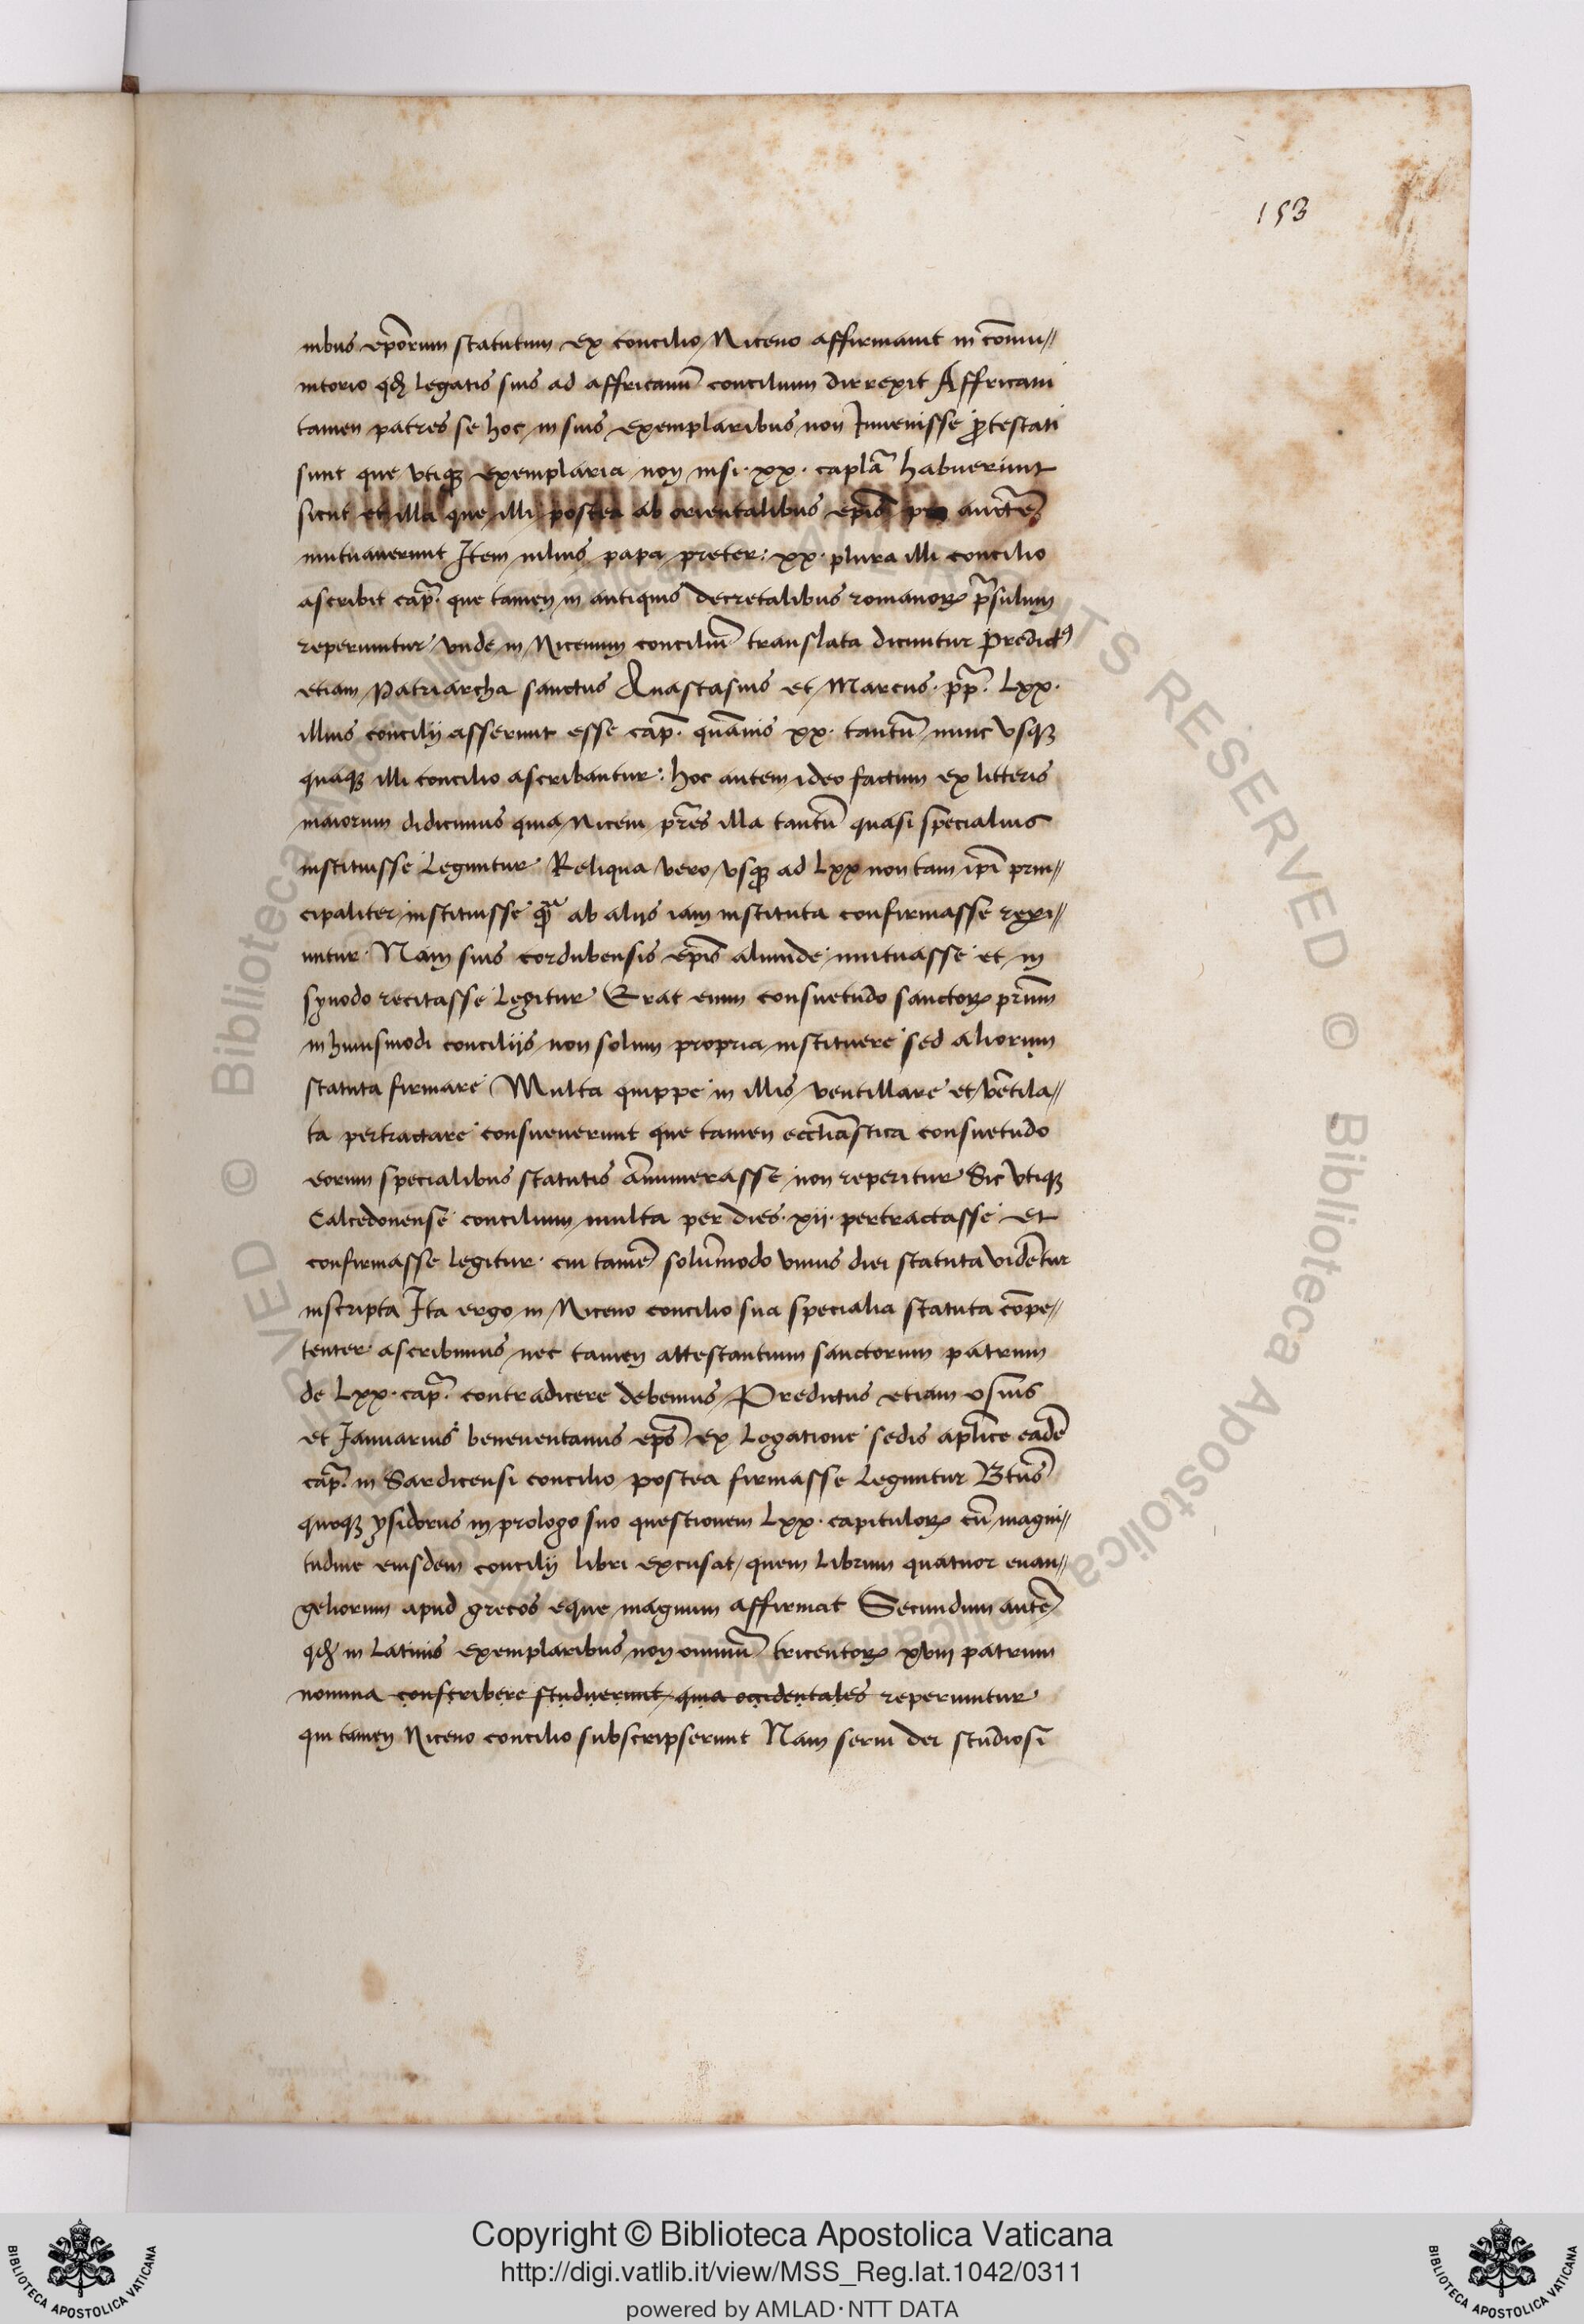 153
nibus ep̄orum statutum ex concilio Niceno affirmauit in cōmu//
nitorio qđ legatis suis ad affricanū concilium dirrexit Affricani
tamen patres se hoc in suis exemplaribus non Inuenisse ꝓtestati
sunt que vtiqꝫ exemplaria non nisi · xx · capl̄a habuerunt
sicut et illa que illi postea ab orientalibus ep̄is pro auctē
mutuauerunt Item iulius papa preter : xx · plura illi concilio
ascribit cap̄. que tamen in antiquis decretalibus romanoꝝ p̄sulum
reperiuntur vnde in Nicenum conciliū translata dicuntur Predictꝰ
etiam Patriarcha sanctus Anastasius et Marcus · pp̄. Lxx ·
illius concilij asserunt esse cap̄. quāuis xx · tantū nunc vsqꝫ
quaqꝫ illi concilio ascribantur : hoc autem ideo factum ex litteris
maiorum didicimus quia Niceni pr̄es illa tantū quasi specialius
instituisse leguntur Reliqua vero vsqꝫ ad Lxx non tam ip̄i prin//
cipaliter instituisse q̄ ab alijs iam instituta confirmasse repi//
untur · Nam sius cordubensis ep̄s aliunde mutuasse et in
synodo recitasse legitur Erat enim consuetudo sanctoꝝ prūm
in huiusmodi concilijs non solum propria instituere sed aliorum
statuta firmare Multa quippe in illis ventillare et vētila//
ta pertractare consueuerunt que tamen eccl̄iastica consuetudo
eorum specialibus statutis ānumerasse non reperitur Sic vtiqꝫ
Calcedonense concilium multa per dies · xij · pertractasse et
confirmasse legitur · cui tamē solūmodo vnius diei statuta vidētur
inscripta Ita ergo in Niceno concilio sua specialia statuta cōpe//
tenter ascribimus nec tamen attestantium sanctorum patrum
de Lxx · cap̄. contradicere debemus Predictus etiam osius
et Januarius beneuentanus ep̄s ex legatione sedis ap̄lice eadē
cap̄. in Sardicensi concilio postea firmasse leguntur Btūs
quoqꝫ ysidorus in prologo suo questionem Lxx · capituloꝝ cū magni//
tudine eiusdem concilij libri excusat quem librum quatuor euan//
geliorum apud grecos eque magnum affirmat Secundum autē
qđ in latinis exemplaribus non omniū tricentoꝝ xviij patrum
nomina conscribere studuerunt quia occidentales reperiuntur
qui tamen Niceno concilio subscripserunt Nam serui dei studiosi
Copyright © Biblioteca Apostolica Vaticana
http://digi.vatlib.it/view/MSS_Reg.lat.1042/0311
powered by AMLAD · NTT DATA
BIBLIOTECA APOSTOLICA VATICANA
BIBLIOTECA APOSTOLICA VATICANA